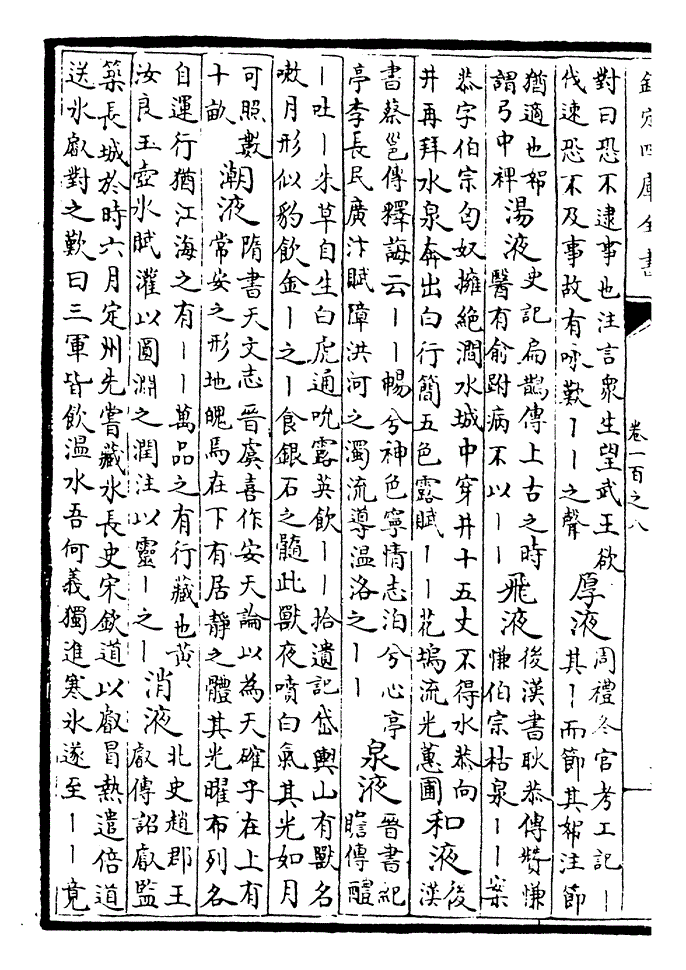 欽定四庫全書
卷一百之八
對曰恐不逮事也注言衆生望武王欲
伐速恐不及事故有咏歎丨丨之聲
厚液
周禮冬官考工記丨
其丨而節其帤注節
猶適也帤
謂弓中裨
湯液
史記扁鵲傳上古之時
醫有俞跗病不以丨丨
飛液
後漢書耿恭傳贊慊
慊伯宗枯泉丨丨案
恭字伯宗匈奴擁絶澗水城中穿井十五丈不得水恭向
井再拜水泉奔出白行簡五色露賦丨丨花塢流光蕙圃
和液
後
漢
書蔡邕傳釋誨云丨丨暢兮神色寧情志泊兮心亭
亭李長民廣汴賦障洪河之濁流導温洛之丨丨
泉液
晉書紀
瞻傳醴
丨吐丨朱草自生白虎通吮露英飲丨丨拾遺記岱輿山有獸名
嗽月形似豹飲金丨之丨食銀石之髓此獸夜噴白氣其光如月
可照數
十畝
潮液
隋書天文志晉虞喜作安天論以為天確乎在上有
常安之形地魄焉在下有居靜之體其光曜布列各
自運行猶江海之有丨丨萬品之有行藏也黄
汝良玉壺氷賦灌以圓淵之潤注以靈丨之丨
消液
北史趙郡王
叡傳詔叡監
築長城於時六月定州先嘗藏氷長史宋欽道以叡冒熱遣倍道
送氷叡對之歎曰三軍皆飲温水吾何義獨進寒氷遂至丨丨竟